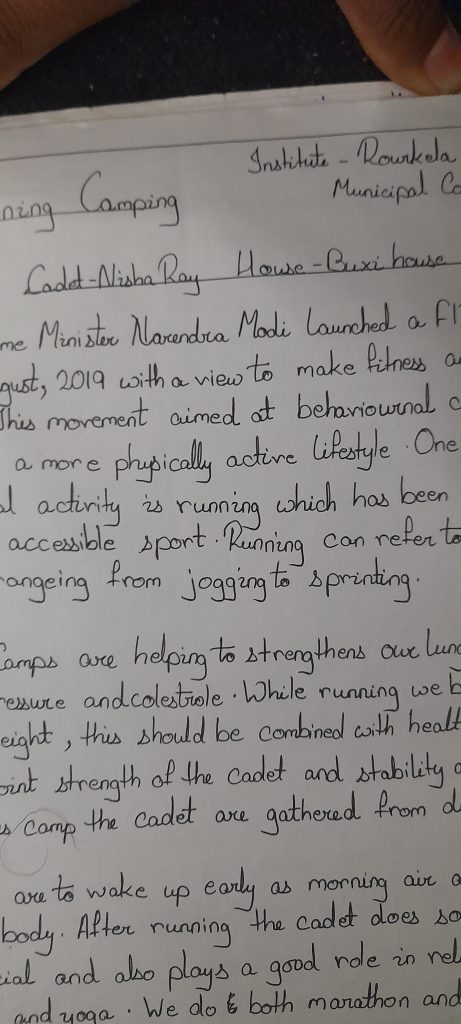 Institute - Rourkela
Municipal Co
ning Camping
Cadet-Nisha Ray House-Buxi house
me Minister Narendra Modi launched a FI
gust, 2019 with a view to make fitness a
This movement aimed at behaviournal c
a more physically active lifestyle. One
l activity is running which has been
accessible sport. Running can refer to
rangeing from jogging to sprinting.
Camps are helping to strengthens our lung
ressure and colestrole. While running we b
eight, this should be combined with healt
oint strength of the cadet and stability o
s camp the cadet are gathered from d
are to wake up early as morning air a
body. After running the cadet does so
ial and also plays a good role in rel
and yoga. We do both marathon and